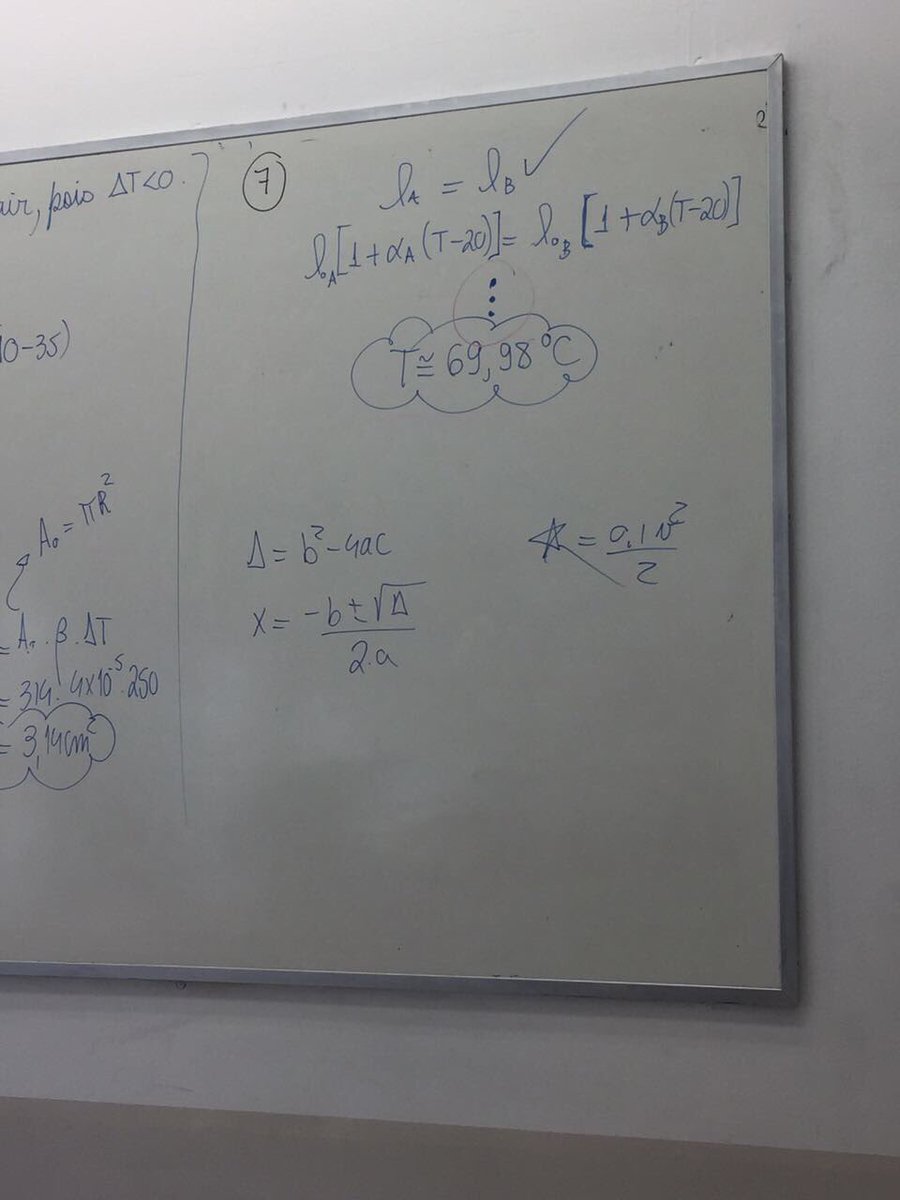 pois ΔT<0.
10-35)
A₀ = πR²
= A₀ . β . ΔT
= 314 . 4x10⁻⁵ . 250
= 3,14cm²
7
l_A = l_B ✓
l₀_A [1+α_A (T-20)] = l₀_B [1+α_B (T-20)]
⋮
T ≅ 69,98 °C
Δ = b² - 4ac
x = (-b ± √Δ) / 2.a
= 0,1 v² / 2